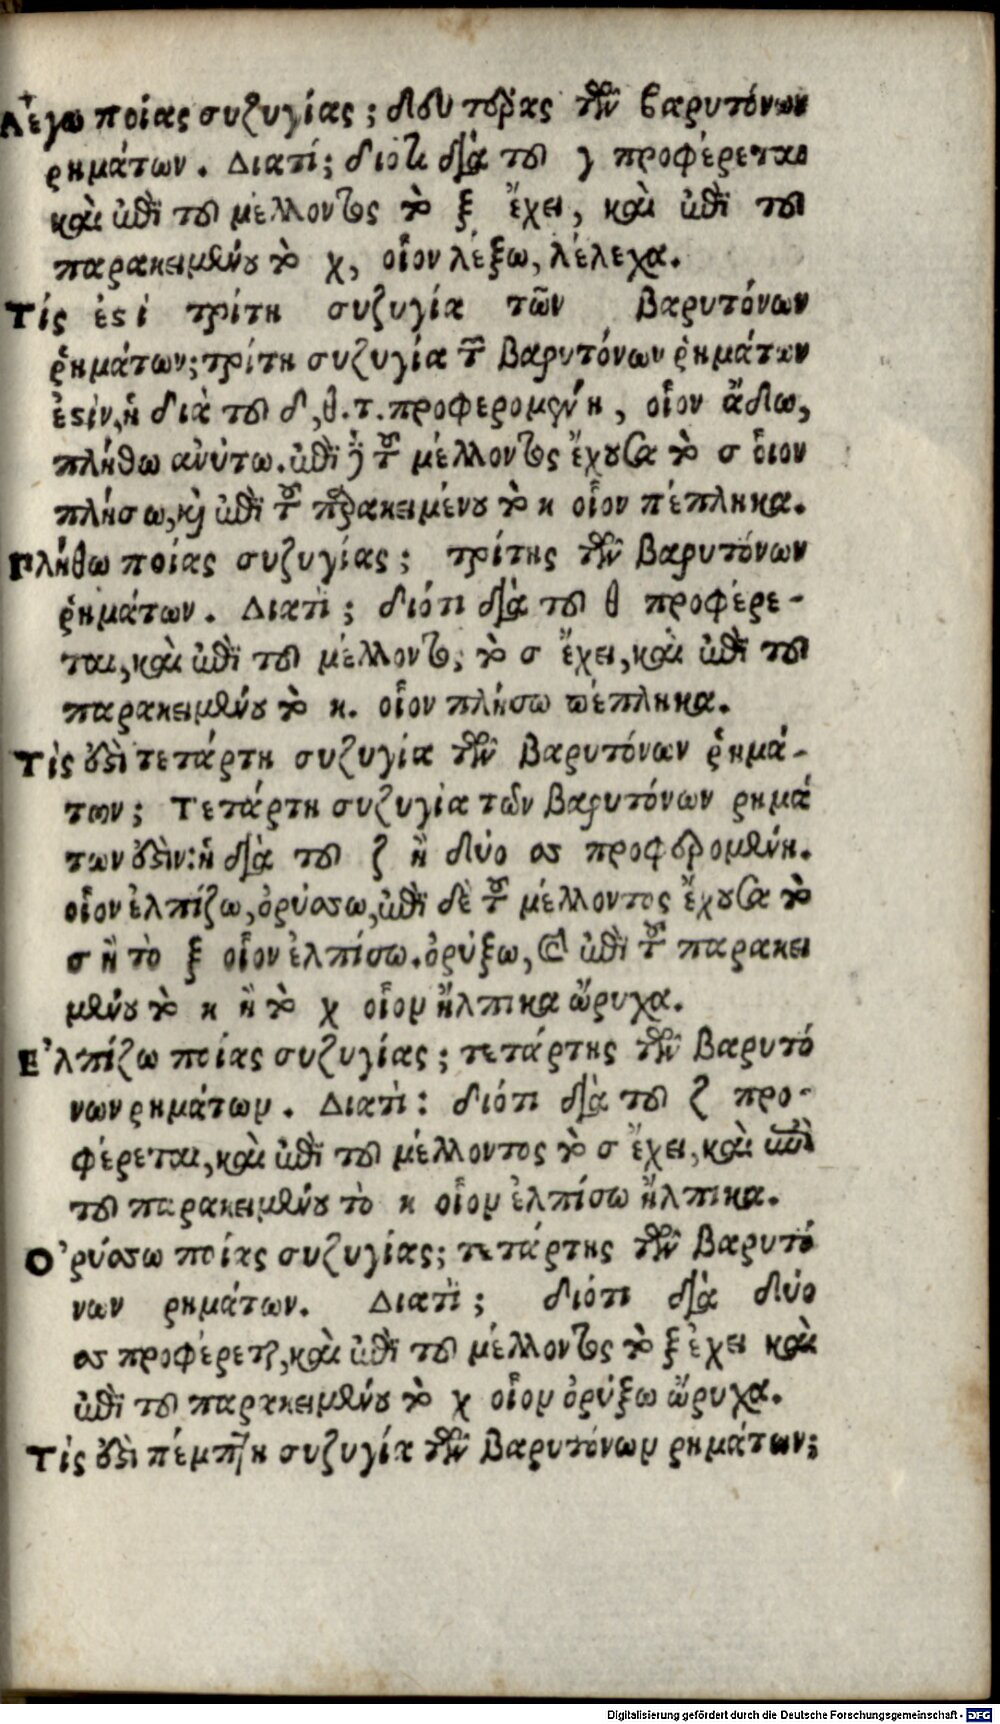 Λέγω ποίας συζυγίας; δευτέρας τῶν βαρυτόνων
ρημάτων. Διατί; διότι διὰ τοῦ γ προφέρεται
καὶ ἐπὶ τοῦ μέλλοντος τὸ ξ ἔχει, καὶ ἐπὶ τοῦ
παρακειμένου τὸ χ, οἷον λέξω, λέλεχα.
Τίς ἐϛὶ τρίτη συζυγία τῶν βαρυτόνων
ῥημάτων; τρίτη συζυγία τῶν βαρυτόνων ῥημάτων
ἐϛίν, ἡ διὰ τοῦ δ, θ. τ. προφερομένη, οἷον ἄδω,
πλήθω ἀνύτω. ἐπὶ δὲ τοῦ μέλλοντος ἔχουσα τὸ σ οἷον
πλήσω, καὶ ἐπὶ τοῦ παρακειμένου τὸ κ οἷον πέπληκα.
Πλήθω ποίας συζυγίας; τρίτης τῶν βαρυτόνων
ῥημάτων. Διατὶ; διότι διὰ τοῦ θ προφέρε-
ται, καὶ ἐπὶ τοῦ μέλλοντος τὸ σ ἔχει, καὶ ἐπὶ τοῦ
παρακειμένου τὸ κ. οἷον πλήσω πέπληκα.
Τὶς ἐϛὶ τετάρτη συζυγία τῶν βαρυτόνων ῥημά-
των; Τετάρτη συζυγία τῶν βαρυτόνων ρημά
των ἐϛὶν: ἡ διὰ τοῦ ζ ἢ δύο σσ προφερομένη.
οἷον ἐλπίζω, ὀρύσσω, ἐπὶ δὲ τοῦ μέλλοντος ἔχουσα τὸ
σ ἢ τὸ ξ οἷον ἐλπίσω. ὀρύξω, καὶ ἐπὶ τοῦ παρακει
μένου τὸ κ ἢ τὸ χ οἷον ἤλπικα ὤρυχα.
Ἐλπίζω ποίας συζυγίας; τετάρτης τῶν βαρυτό
νων ρημάτων. Διατὶ: διότι διὰ τοῦ ζ προ-
φέρεται, καὶ ἐπὶ τοῦ μέλλοντος τὸ σ ἔχει, καὶ ἐπὶ
τοῦ παρακειμένου τὸ κ οἷον ἐλπίσω ἤλπικα.
Ὀρύσσω ποίας συζυγίας; τετάρτης τῶν βαρυτό
νων ρημάτων. Διατὶ; διότι διὰ δύο
σσ προφέρεται, καὶ ἐπὶ τοῦ μέλλοντος τὸ ξ ἔχει καὶ
ἐπὶ τοῦ παρακειμένου τὸ χ οἷον ὀρύξω ὤρυχα.
Τίς ἐϛὶ πέμπτη συζυγία τῶν βαρυτόνων ρημάτων;
Digitalisierung gefördert durch die Deutsche Forschungsgemeinschaft - DFG